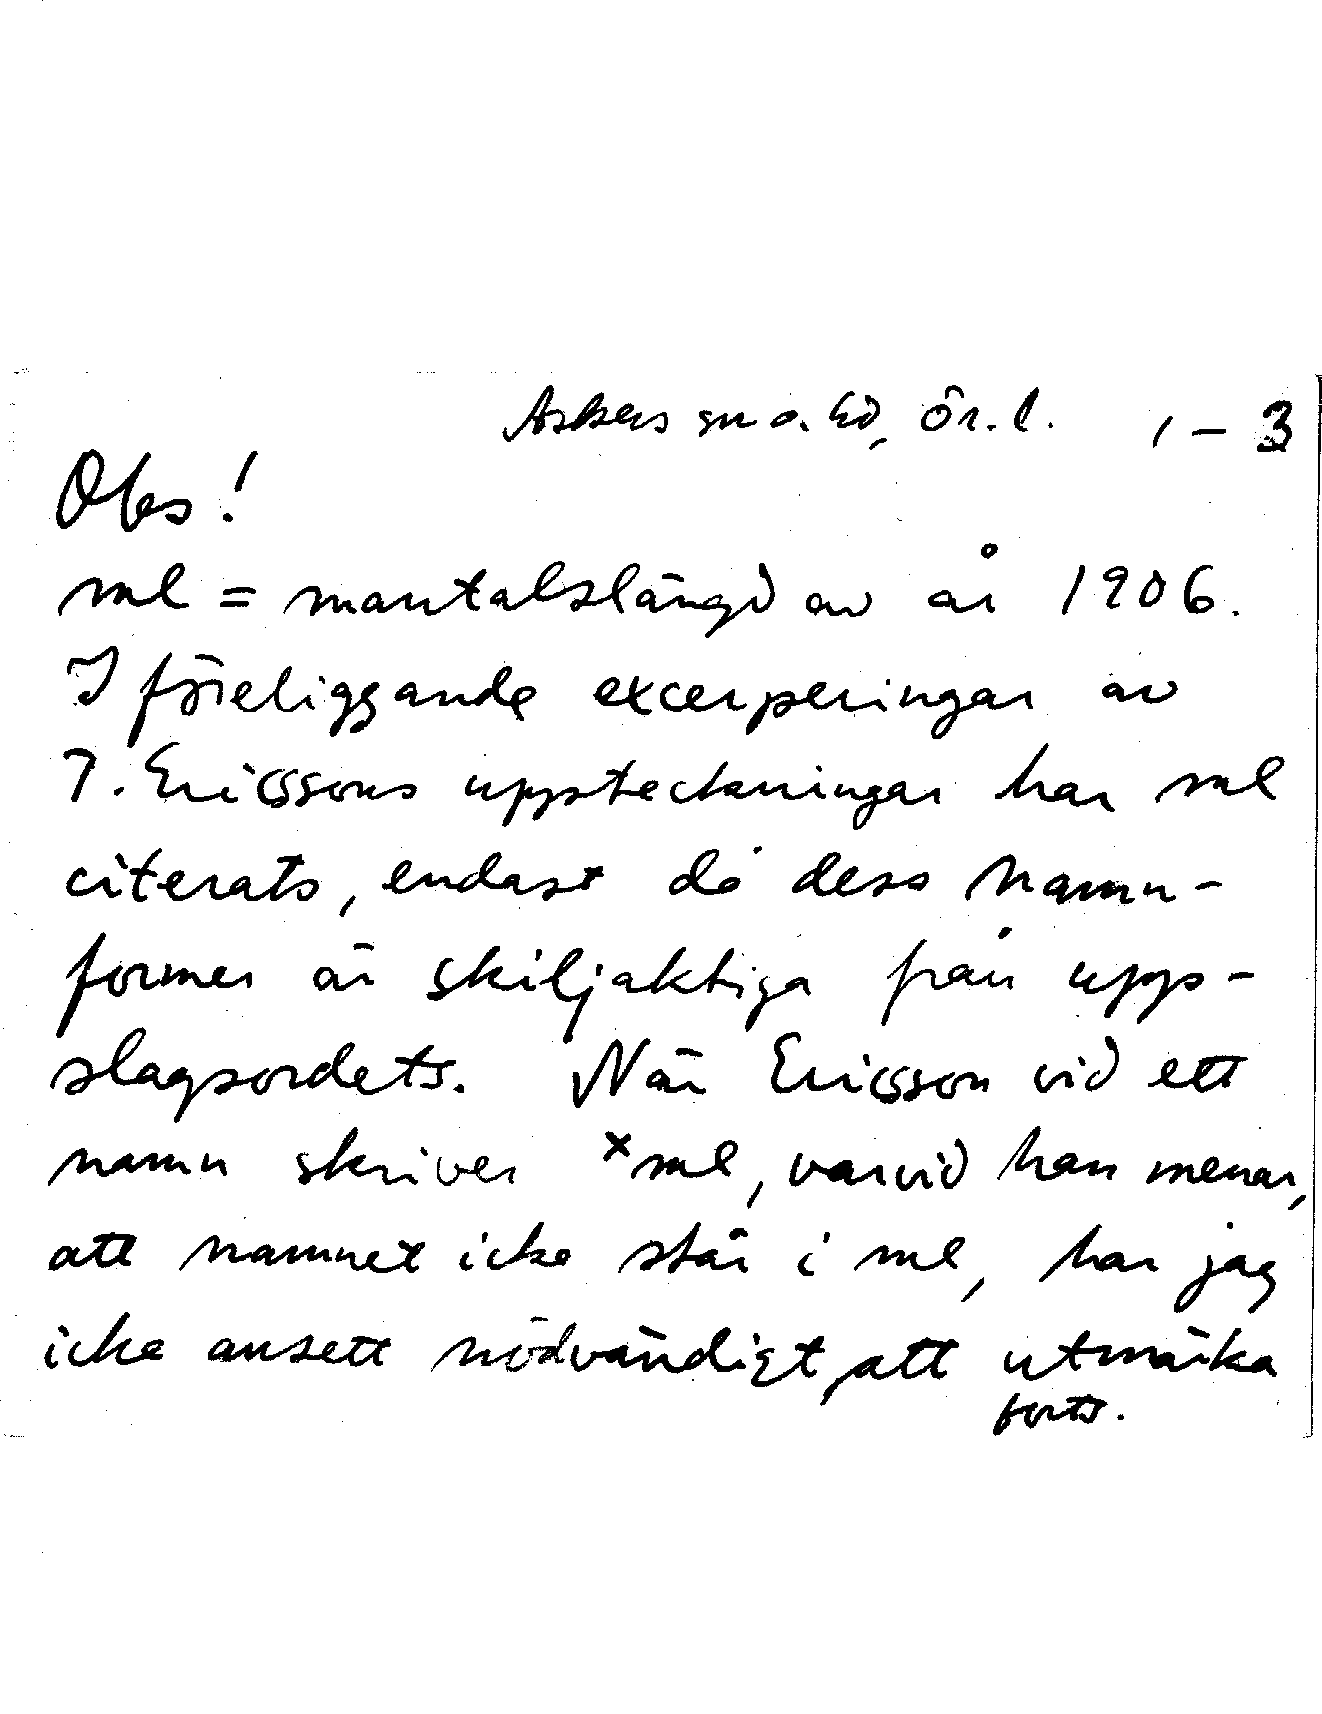 Askers sn o. hd, Ör. l. 1 – 3
Obs!
ml = mantalslängd av år 1906.
I föreliggande excerperingar av
J. Ericssons uppteckningar har ml
citerats, endast då dess namn-
former är skiljaktiga från upp-
slagsordets. När Ericsson vid ett
namn skriver ˣml, varvid han menar,
att namnet icke står i ml, har jag
icke ansett nödvändigt, att utmärka
forts.